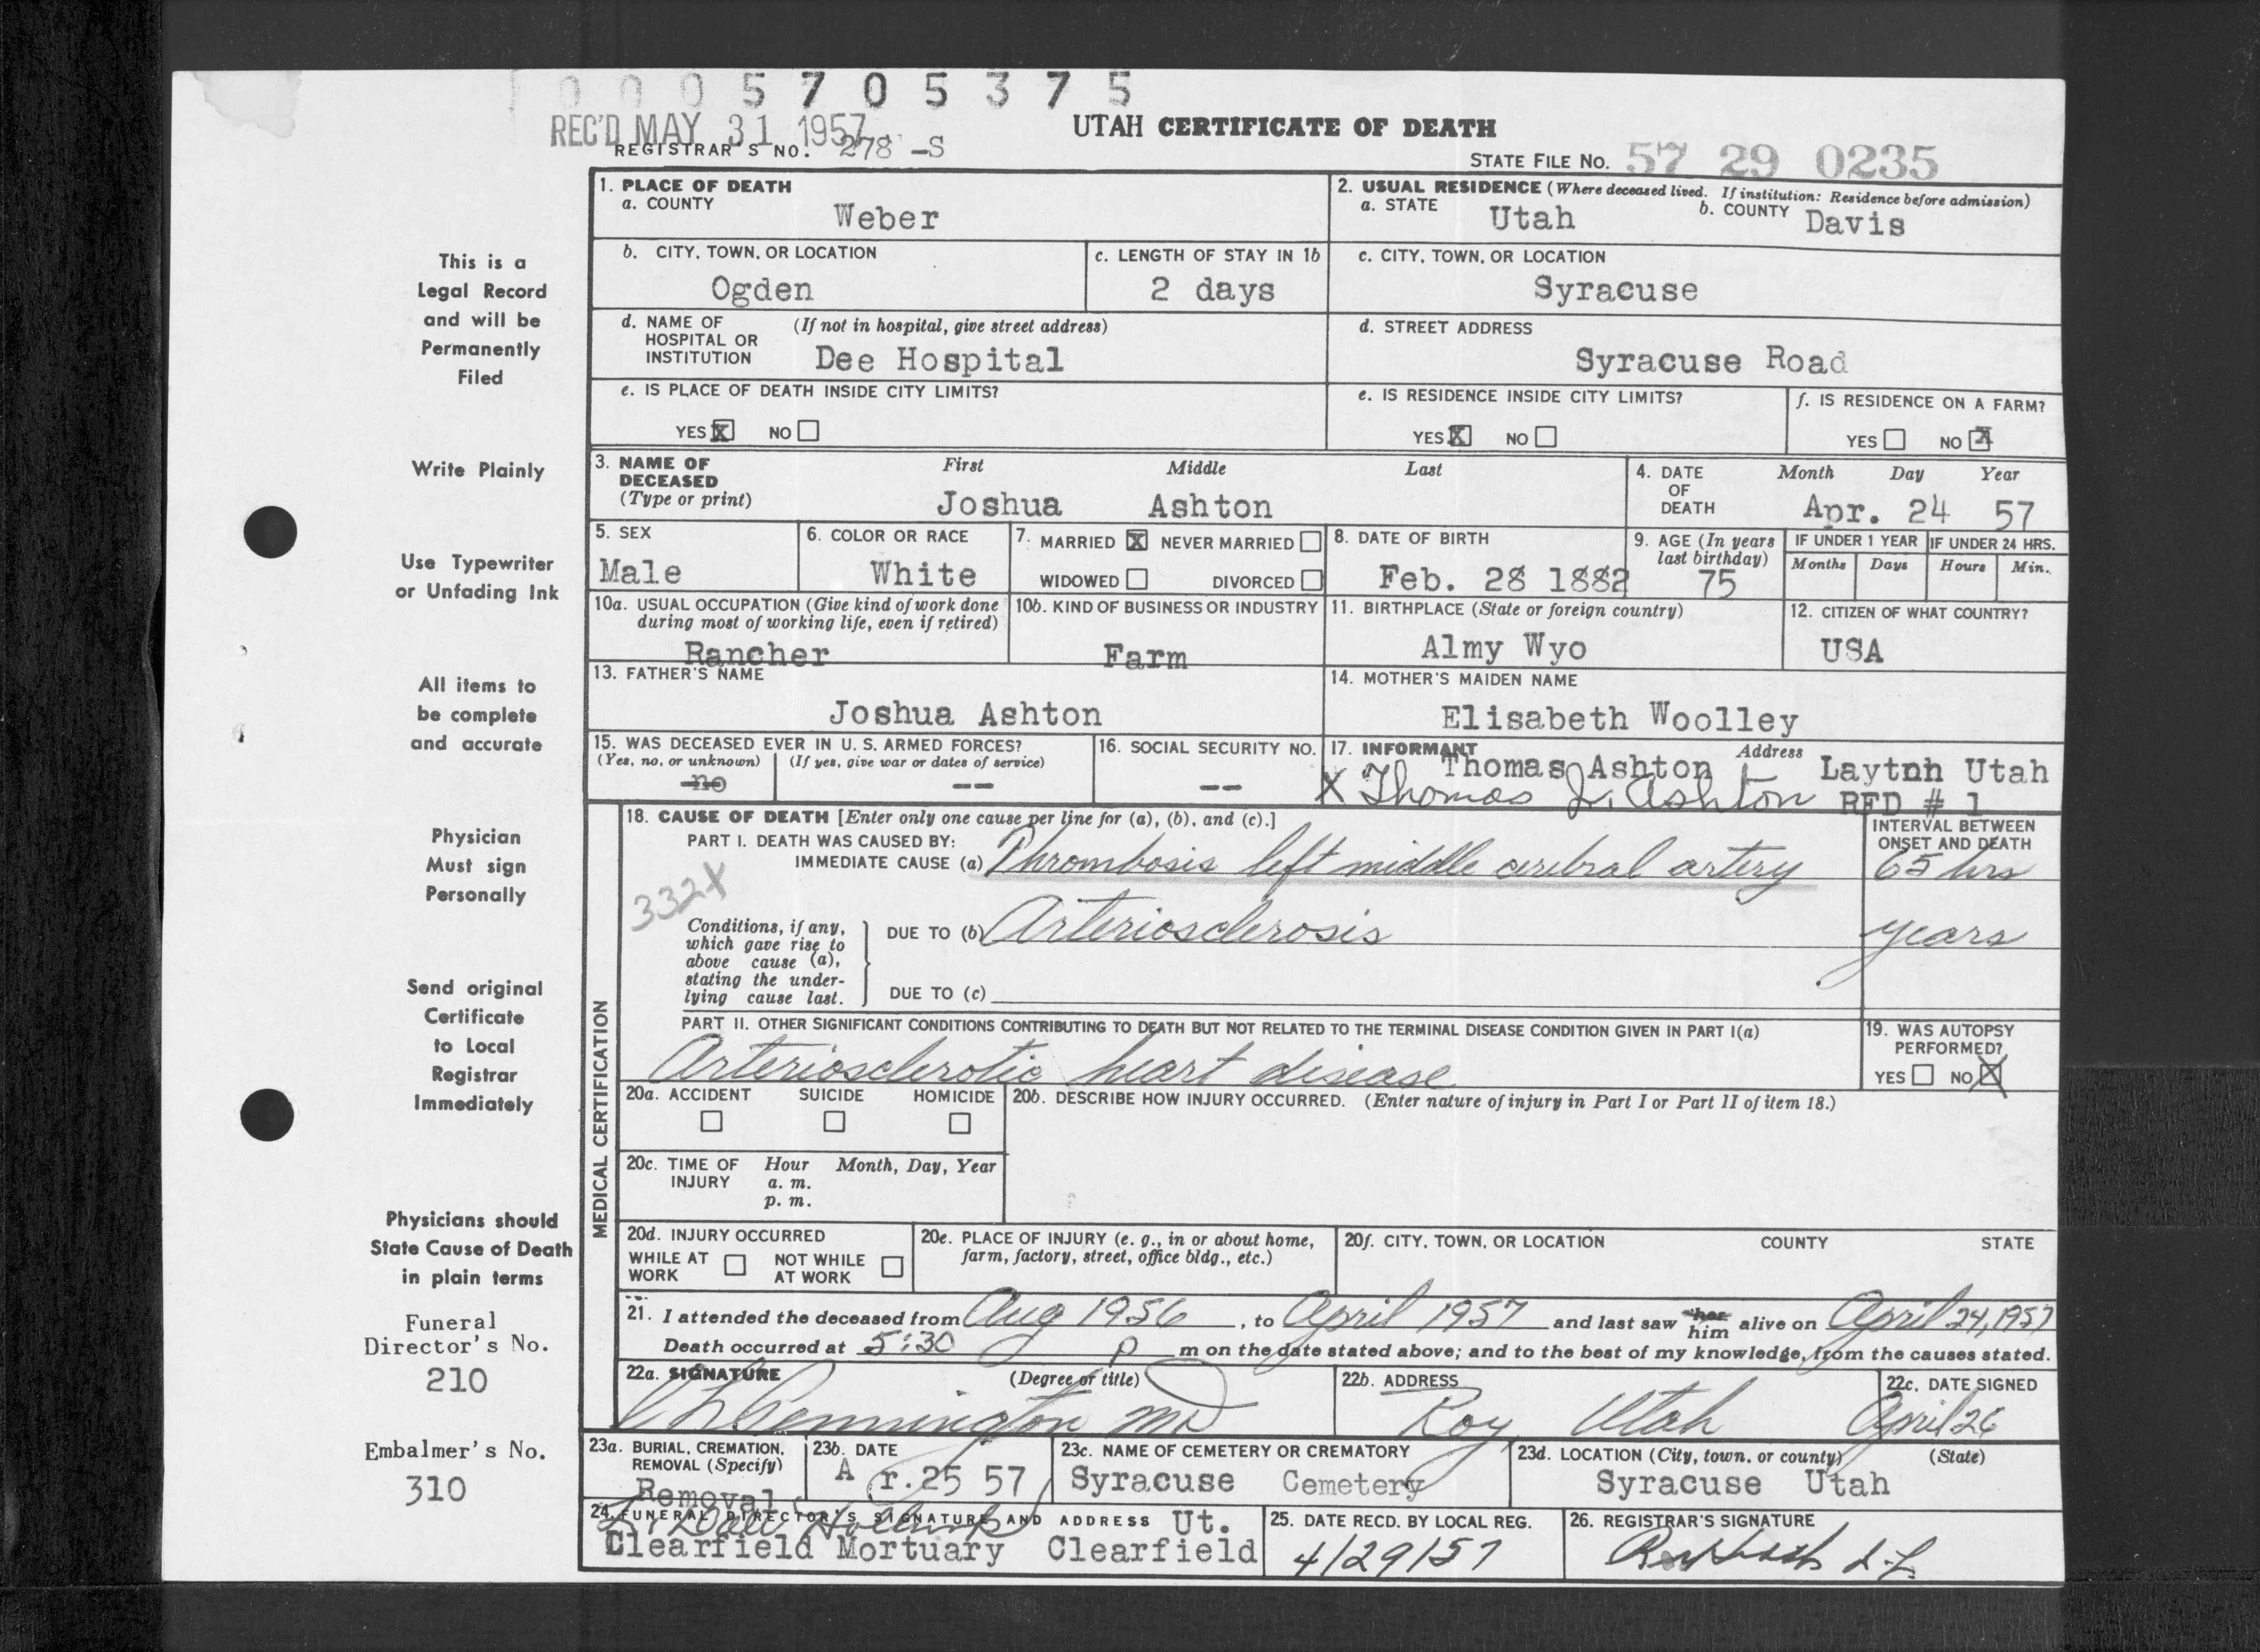 0005705375
REC'D MAY 31 1957
UTAH CERTIFICATE OF DEATH
REGISTRAR'S NO. 278 -S
STATE FILE NO. 57 29 0235
This is a
Legal Record
and will be
Permanently
Filed
Write Plainly
Use Typewriter
or Unfading Ink
All items to
be complete
and accurate
Physician
Must sign
Personally
Send original
Certificate
to Local
Registrar
Immediately
Physicians should
State Cause of Death
in plain terms
Funeral
Director's No.
210
Embalmer's No.
310
1. PLACE OF DEATH
a. COUNTY
Weber
2. USUAL RESIDENCE (Where deceased lived. If institution: Residence before admission)
a. STATE Utah b. COUNTY Davis
b. CITY, TOWN, OR LOCATION
Ogden
c. LENGTH OF STAY IN 1b
2 days
c. CITY, TOWN, OR LOCATION
Syracuse
d. NAME OF HOSPITAL OR INSTITUTION (If not in hospital, give street address)
Dee Hospital
d. STREET ADDRESS
Syracuse Road
e. IS PLACE OF DEATH INSIDE CITY LIMITS?
YES X NO
e. IS RESIDENCE INSIDE CITY LIMITS?
YES X NO
f. IS RESIDENCE ON A FARM?
YES NO X
3. NAME OF DECEASED (Type or print)
First Middle Last
Joshua Ashton
4. DATE OF DEATH
Month Day Year
Apr. 24 57
5. SEX
Male
6. COLOR OR RACE
White
7. MARRIED X NEVER MARRIED
WIDOWED DIVORCED
8. DATE OF BIRTH
Feb. 28 1882
9. AGE (In years last birthday)
75
IF UNDER 1 YEAR
Months Days
IF UNDER 24 HRS.
Hours Min.
10a. USUAL OCCUPATION (Give kind of work done during most of working life, even if retired)
Rancher
10b. KIND OF BUSINESS OR INDUSTRY
Farm
11. BIRTHPLACE (State or foreign country)
Almy Wyo
12. CITIZEN OF WHAT COUNTRY?
USA
13. FATHER'S NAME
Joshua Ashton
14. MOTHER'S MAIDEN NAME
Elisabeth Woolley
15. WAS DECEASED EVER IN U. S. ARMED FORCES?
(Yes, no, or unknown) (If yes, give war or dates of service)
no --
16. SOCIAL SECURITY NO.
--
17. INFORMANT Address
Thomas Ashton Laytnh Utah
X Thomas J. Ashton RFD # 1
MEDICAL CERTIFICATION
18. CAUSE OF DEATH [Enter only one cause per line for (a), (b), and (c).]
INTERVAL BETWEEN ONSET AND DEATH
PART I. DEATH WAS CAUSED BY:
IMMEDIATE CAUSE (a) Thrombosis left middle cerebral artery 65 hrs
332X
Conditions, if any, which gave rise to above cause (a), stating the underlying cause last.
DUE TO (b) Arteriosclerosis years
DUE TO (c)
PART II. OTHER SIGNIFICANT CONDITIONS CONTRIBUTING TO DEATH BUT NOT RELATED TO THE TERMINAL DISEASE CONDITION GIVEN IN PART I(a)
Arteriosclerotic heart disease
19. WAS AUTOPSY PERFORMED?
YES NO X
20a. ACCIDENT SUICIDE HOMICIDE
20b. DESCRIBE HOW INJURY OCCURRED. (Enter nature of injury in Part I or Part II of item 18.)
20c. TIME OF INJURY Hour Month, Day, Year
a. m.
p. m.
20d. INJURY OCCURRED
WHILE AT WORK NOT WHILE AT WORK
20e. PLACE OF INJURY (e. g., in or about home, farm, factory, street, office bldg., etc.)
20f. CITY, TOWN, OR LOCATION COUNTY STATE
21. I attended the deceased from Aug 1956, to April 1957 and last saw her him alive on April 24, 1957
Death occurred at 5:30 p m on the date stated above; and to the best of my knowledge, from the causes stated.
22a. SIGNATURE (Degree or title)
Pennington MD
22b. ADDRESS
Roy Utah
22c. DATE SIGNED
April 26
23a. BURIAL, CREMATION, REMOVAL (Specify)
Removal
23b. DATE
A r.25 57
23c. NAME OF CEMETERY OR CREMATORY
Syracuse Cemetery
23d. LOCATION (City, town, or county) (State)
Syracuse Utah
24. FUNERAL DIRECTOR'S SIGNATURE AND ADDRESS Ut.
Clearfield Mortuary Clearfield
25. DATE RECD. BY LOCAL REG.
4/29/57
26. REGISTRAR'S SIGNATURE